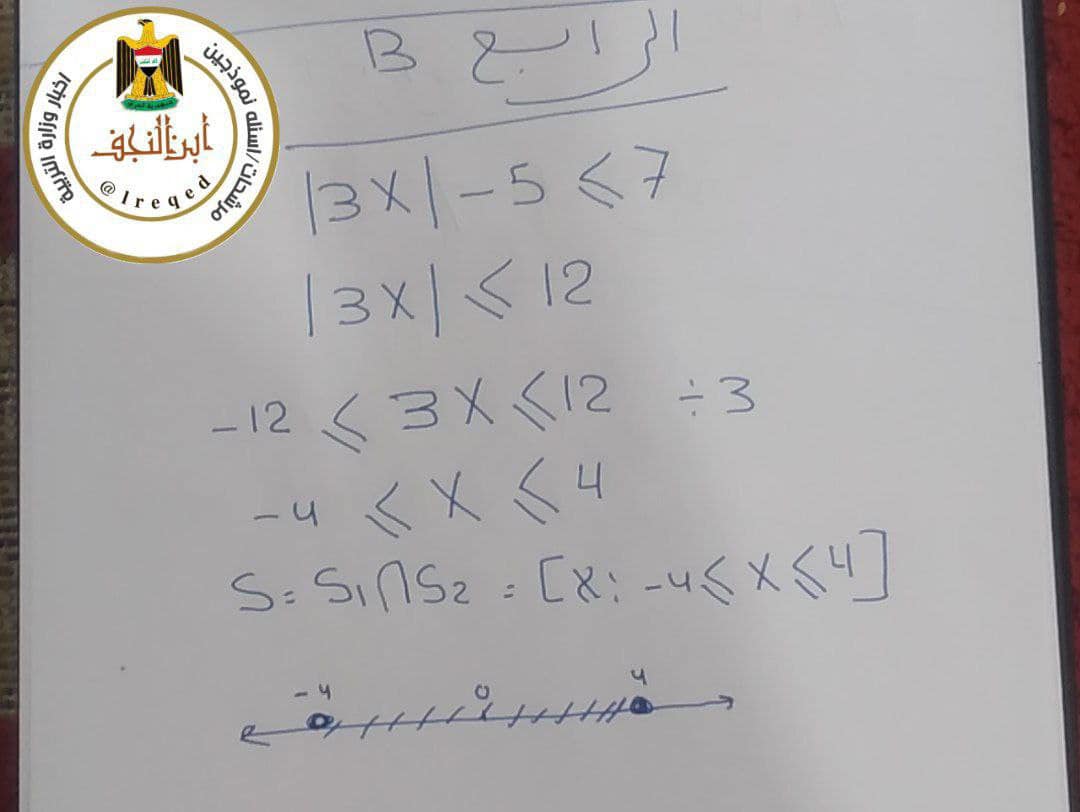 اخبار وزارة التربية
مرشحات/اسئله نموذجين
ابن النجف
@Ireqed
الرابع B
|3X| - 5 ⩽ 7
|3X| ⩽ 12
-12 ⩽ 3X ⩽ 12 ÷3
-4 ⩽ X ⩽ 4
S = S₁∩S₂ = [X: -4 ⩽ X ⩽ 4]
-4 0 4